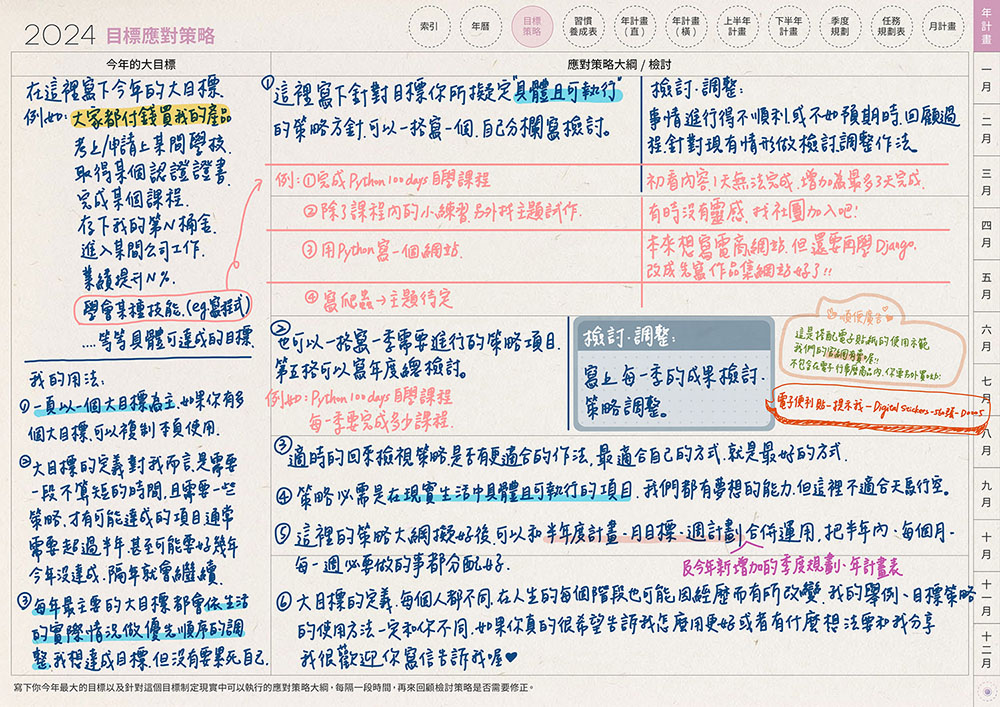 2024 目標應對策略
索引
年曆
目標
策略
習慣
養成表
年計畫
(直)
年計畫
(橫)
上半年
計畫
下半年
計畫
季度
規劃
任務
規劃表
月計畫
年計畫
一月
二月
三月
四月
五月
六月
七月
八月
九月
十月
十一月
十二月
今年的大目標
在這裡寫下今年的大目標.
例如: 大家都付錢買我的產品
考上/申請上某間學校.
取得某個認證證書.
完成某個課程.
存下我的第N桶金.
進入某間公司工作.
業績提升N%.
學會某種技能.(eg.寫程式)
....等等具體可達成的目標.
我的用法:
① 一頁以一個大目標為主.如果你有多
個大目標,可以複製本頁使用.
② 大目標的定義對我而言,是需要
一段不算短的時間,且需要一些
策略,才有可能達成的項目.通常
需要超過半年,甚至可能要好幾年
今年沒達成,隔年就會繼續.
③ 每年最主要的大目標都會依生活
的實際情況做優先順序的調
整,我想達成目標,但沒有要累死自己.
應對策略大綱 / 檢討
① 這裡寫下針對目標你所擬定"具體且可執行"
的策略方針,可以一格寫一個.自己分欄寫檢討。
檢討·調整:
事情進行得不順利,或不如預期時,回顧過
程,針對現有情形做檢討,調整作法。
例:①完成Python 100 days 自學課程
初看內容,1天無法完成,增加為最多3天完成.
②除了課程內的小練習,另外找主題試作.
有時沒有靈感,找社團加入吧!
③用Python 寫一個網站.
本來想寫電商網站,但還要再學Django,
改成先寫作品集網站好了!!
④寫爬蟲→主題待定
② 也可以一格寫一季需要進行的策略項目.
第五格可以寫年度總檢討。
例如:Python 100 days 自學課程
每一季要完成多少課程.
檢討·調整:
寫上每一季的成果檢討·
策略調整。
順便廣告
這是搭配電子貼紙的使用示範
我們的官網有賣喔!!
不包含在電子行事曆商品內,你要另外買的喲
電子便利貼-提示我-Digital Stickers-
③ 適時的回來檢視策略,是否有更適合的作法,最適合自己的方式,就是最好的方式.
④ 策略必需是在現實生活中具體且可執行的項目.我們都有夢想的能力,但這裡不適合天馬行空。
⑤ 這裡的策略大綱擬好後,可以和半年度計畫、月目標、週計劃合併運用,把半年內、每個月、
每一週必要做的事都分配好.
及今年新增加的季度規劃、年計畫表
⑥ 大目標的定義,每個人都不同,在人生的每個階段也可能因經歷而有所改變.我的舉例、目標策略
的使用方法一定和你不同,如果你真的很希望告訴我怎麼用更好或者有什麼想法要和我分享
我很歡迎你寫信告訴我喔♥
寫下你今年最大的目標以及針對這個目標制定現實中可以執行的應對策略大綱,每隔一段時間,再來回顧檢討策略是否需要修正。